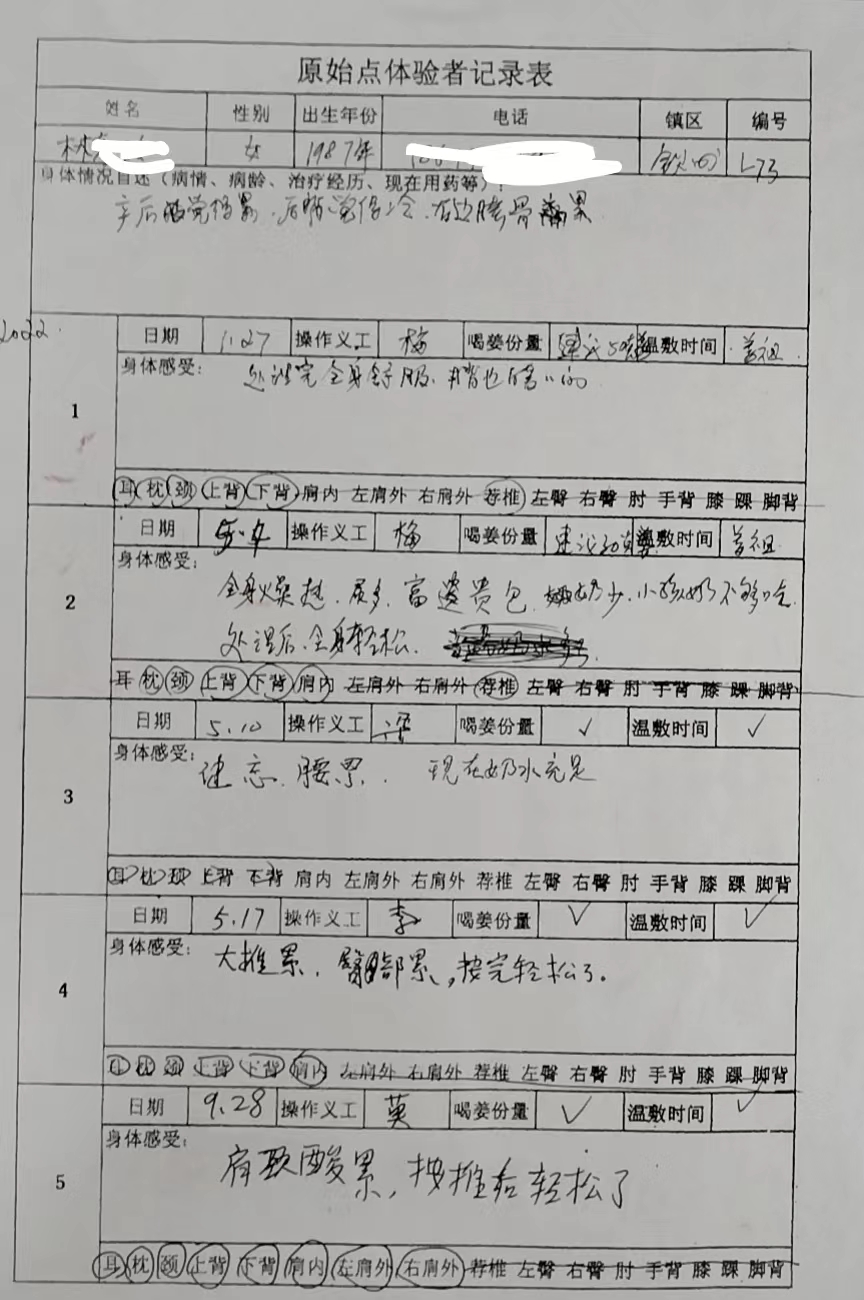 原始点体验者记录表
姓名 性别 出生年份 电话 镇区 编号
林 女 1987年 L73
身体情况自述（病情、病龄、治疗经历、现在用药等）：
后背觉得冷、右边膝骨累
2022.
1 日期 1.27 操作义工 梅 喝姜份量 建议50 温敷时间
身体感受：
处理完全身舒服、背也
耳 枕 颈 上背 下背 肩内 左肩外 右肩外 荐椎 左臀 右臀 肘 手背 膝 踝 脚背
2 日期 操作义工 梅 喝姜份量 建议 温敷时间
身体感受：
全身燥热、尿多、富婆贵包、奶少、小孩奶不够吃
处理后、全身轻松、
耳 枕 颈 上背 下背 肩内 左肩外 右肩外 荐椎 左臀 右臀 肘 手背 膝 踝 脚背
3 日期 5.10 操作义工 喝姜份量 ✓ 温敷时间 ✓
身体感受：
健忘、腰累、 现在奶水充足
耳 枕 颈 上背 下背 肩内 左肩外 右肩外 荐椎 左臀 右臀 肘 手背 膝 踝 脚背
4 日期 5.17 操作义工 李 喝姜份量 ✓ 温敷时间 ✓
身体感受：
大推累、臀部累，按完轻松了。
耳 枕 颈 上背 下背 肩内 左肩外 右肩外 荐椎 左臀 右臀 肘 手背 膝 踝 脚背
5 日期 9.28 操作义工 莫 喝姜份量 ✓ 温敷时间 ✓
身体感受：
肩颈酸累，按推后轻松了
耳 枕 颈 上背 下背 肩内 左肩外 右肩外 荐椎 左臀 右臀 肘 手背 膝 踝 脚背